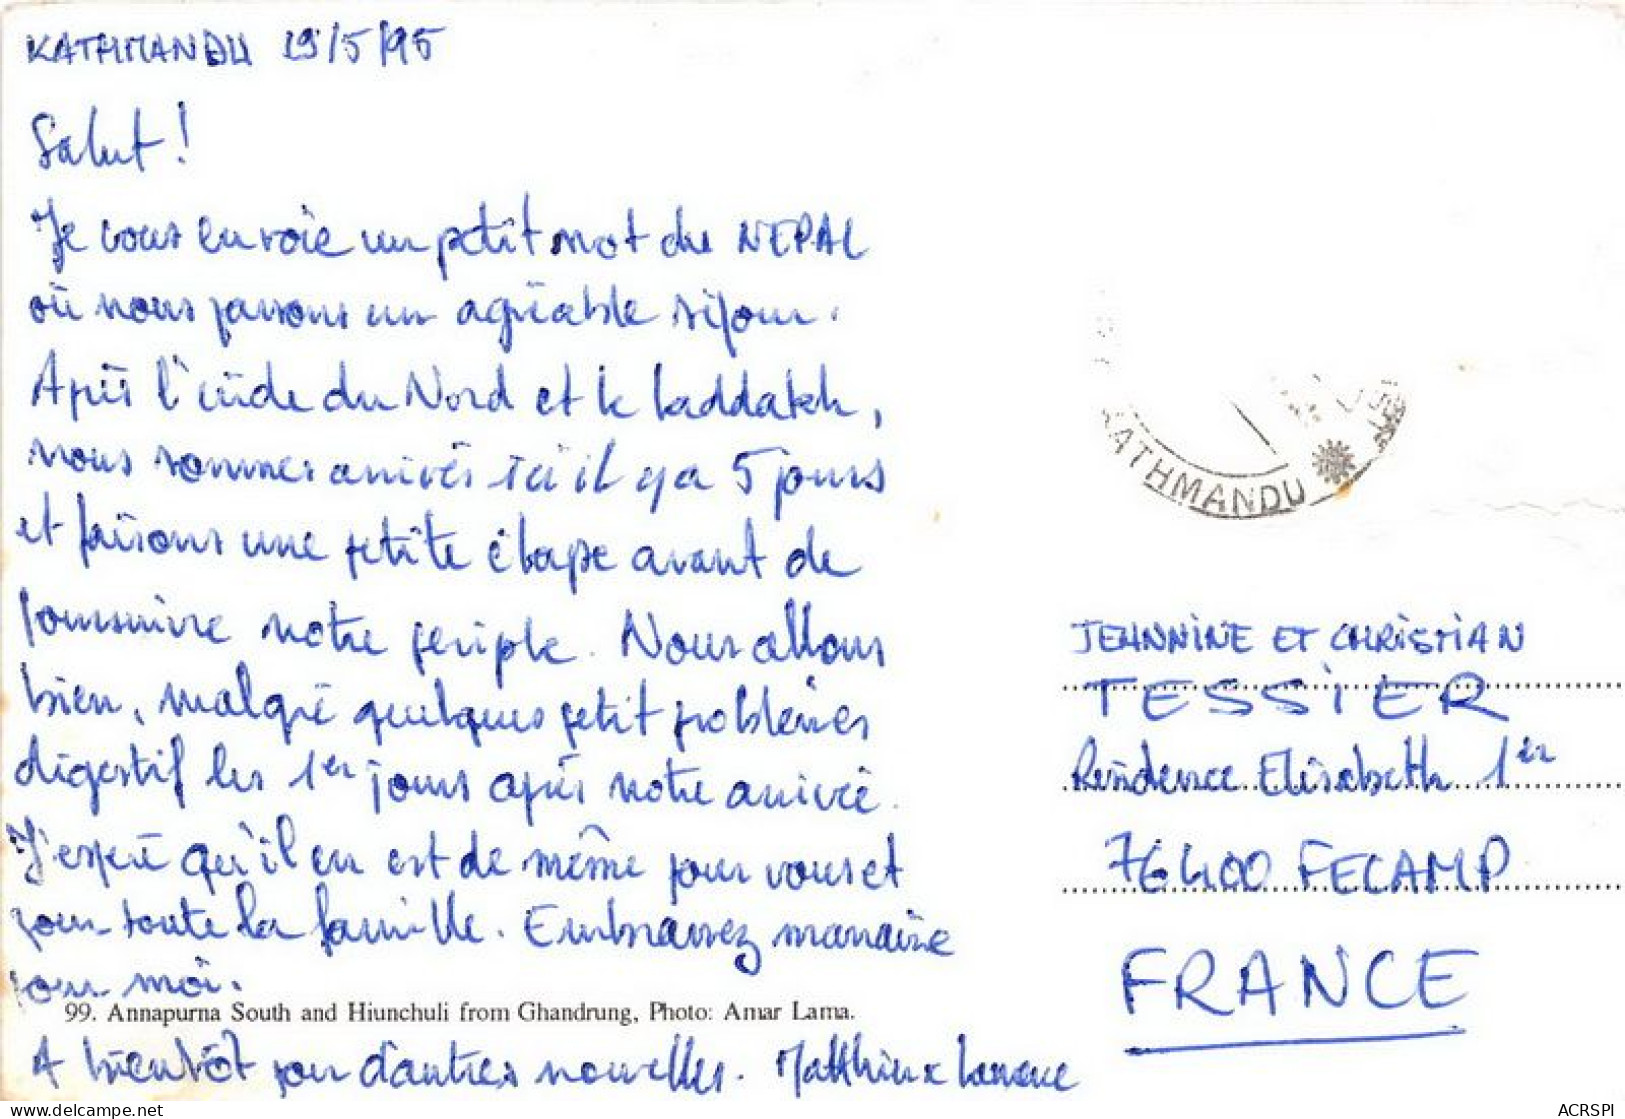 KATHMANDU 19/5/95
Salut !
Je vous envoie un petit mot du NEPAL
où nous passons un agréable séjour.
Après l'inde du Nord et le laddakh,
nous sommes arrivés ici il y a 5 jours
et faisons une petite étape avant de
poursuivre notre périple. Nous allons
bien, malgré quelques petit problèmes
digestif les 1er jours après notre arrivée.
J'espère qu'il en est de même pour vous et
pour toute la famille. Embrassez
pour moi.
99. Annapurna South and Hiunchuli from Ghandrung, Photo: Amar Lama.
A bientôt pour d'autres nouvelles. Matthieu
KATHMANDU
JEANNINE ET CHRISTIAN
TESSIER
Résidence Elisabeth 1er
76400 FECAMP
FRANCE
ACRSPI